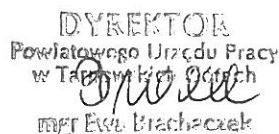 DYREKTOR
Powiatowego Urzędu Pracy
w Tarnowskich Górach
mgr Ewa Brachaczek